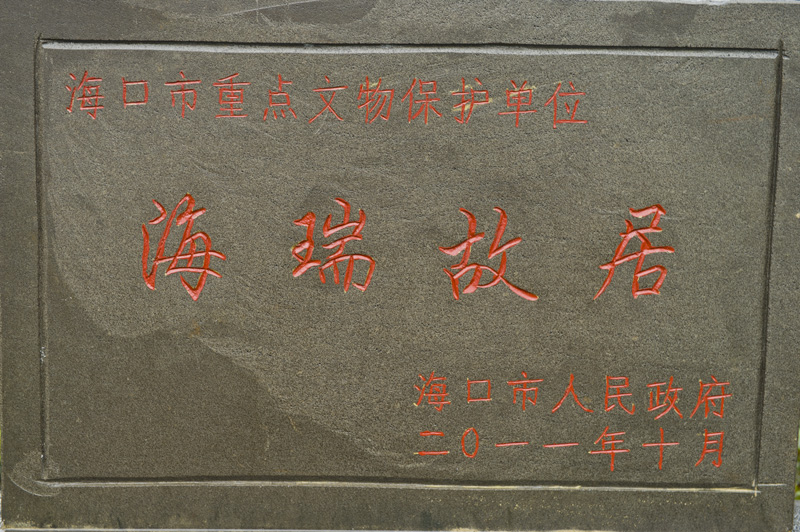 海口市重点文物保护单位
海瑞故居
海口市人民政府
二〇一一年十月